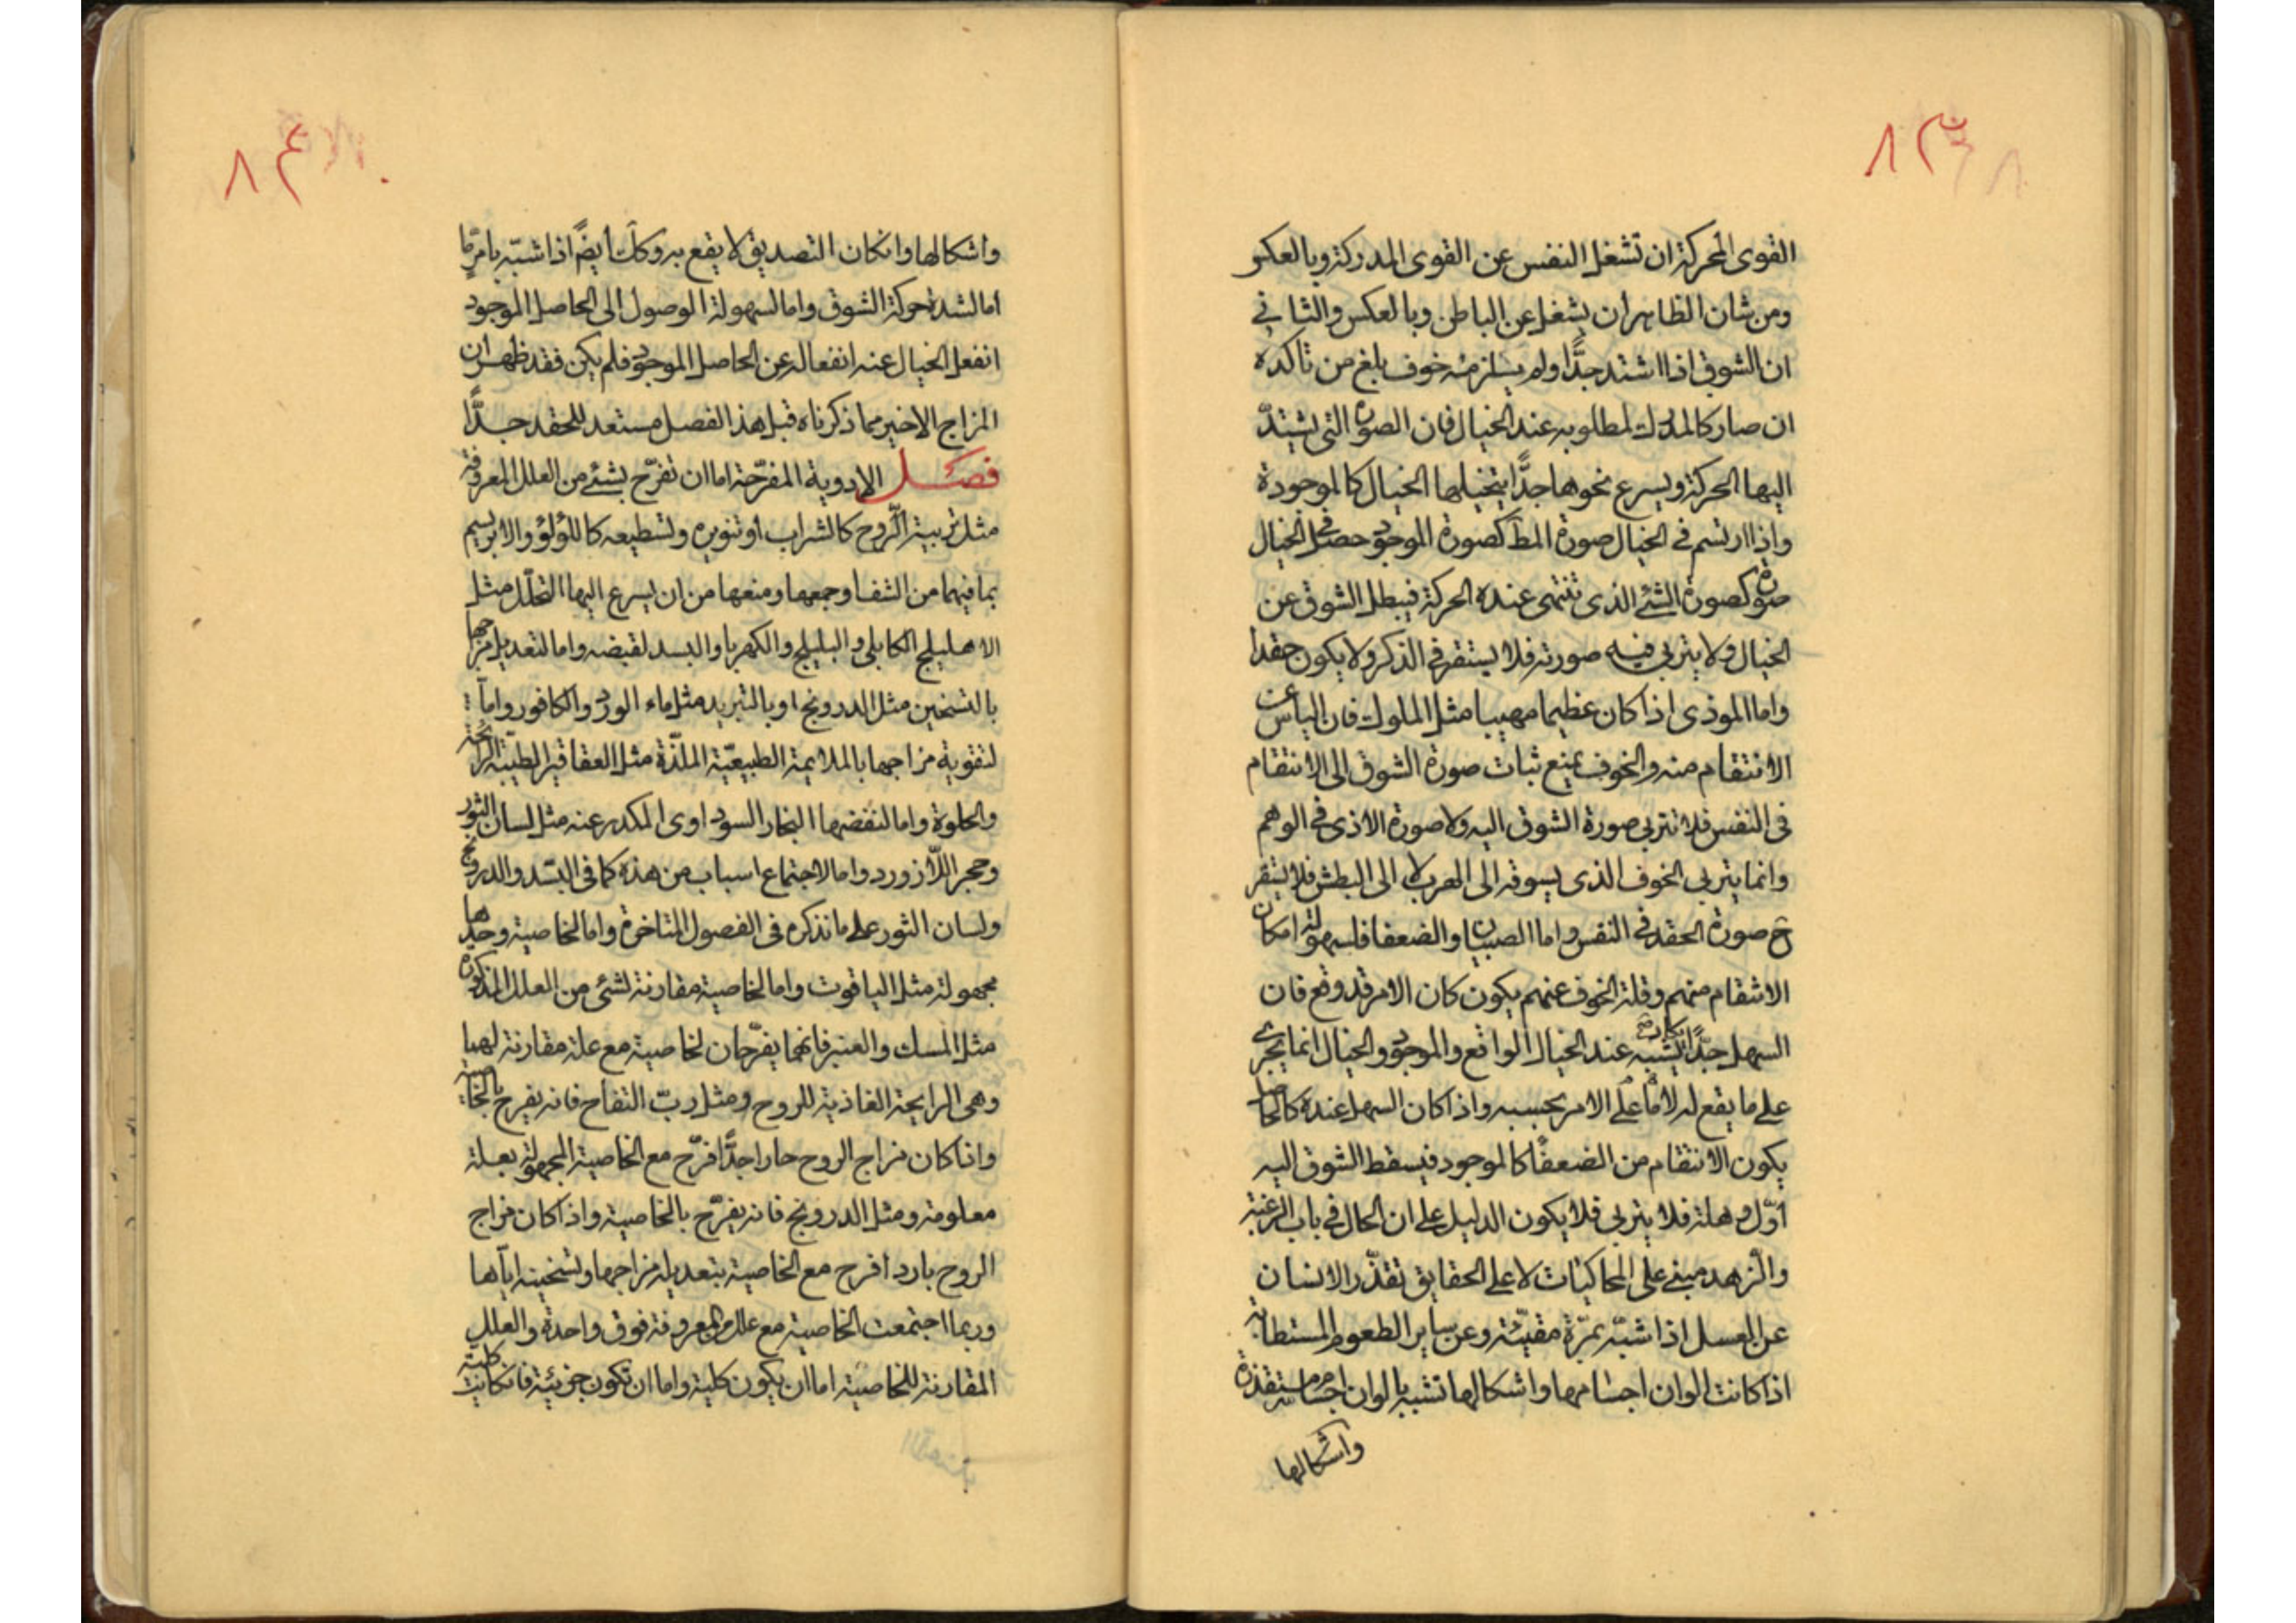 ٨٣
القوى المحركة ان تشغل النفس عن القوى المدركة وبالعكس
ومن شان الظاهر ان يشغل عن الباطن وبالعكس والثانى
ان الشوق اذا اشتد جدًّا ولم يستلزمه خوف بلغ من تاكده
ان صار كالمدرك لمطلوبه عند الخيال فان الصورة التى يشتدّ
اليها الحركة ويسرع نحوها جدًّا يتخيلها الخيال كالموجودة
واذا ارتسم فى الخيال صورة المط كصورة الموجود حصل فى الخيال
صورة كصورة الشئ الذى تنتهى عنده الحركة فيبطل الشوق عن
الخيال ولا يتربى فيه صورته فلا يستقر فى الذكر ولا يكون حقدا
واما الموذى اذا كان عظيما مهيبا مثل الملوك فان الياس عن
الانتقام منه والخوف يمنع ثبات صورة الشوق الى الانتقام
فى النفس فلا تتربى صورة الشوق اليه ولا صورة الاذى فى الوهم
وانما يتربى الخوف الذى يسوقه الى الهرب لا الى البطش فلا يستقر
ح صورة الحقد فى النفس واما الصبيان والضعفا فلسهولة امكان
الانتقام منهم وقلة الخوف عنهم يكون كان الامر قد وقع فان
السهل جدًّا يكان الشبيه عند الخيال الواقع والموجود والخيال انما يجرى
على ما يقع له لا ما على الامر بحسبه واذا كان السهل عنده كالحاصل
يكون الانتقام من الضعفا كالموجود فيسقط الشوق اليه
اوّل وهلة فلا يتربى فلا يكون الدليل على ان الحال فى باب الرغبة
والزهد مبنى على المحاكيات لا على الحقايق تقذّر الانسان
عن العسل اذا شبّه بمرّة مقيّئة وعن ساير الطعوم المستطابة
اذا كانت الوان اجسامها واشكالها تشبه بالوان اجسام مستقذرة
واشكالها
٨٤
واشكالها وان كان التصديق لا يقع به وكك أيضً اذا شبّه بامرٍ ما
اما لشدة حركة الشوق واما لسهولة الوصول الى الحاصل الموجود
انفعل الخيال عنه انفعاله عن الحاصل الموجود فلم يكن فقد ظهر ان
المزاج الاخير مما ذكرناه قبل هذا الفصل مستعد للحقد جدًّا
فصل الادوية المفرّحة اما ان تفرّح بشئ من العلل المعروفة
مثل تربية الروح كالشراب أو تنويره وتسطيعه كاللؤلؤ والابريسم
بما فيهما من الشفا وجمعها ومنعها من ان يسرع اليها التحلّل مثل
الاهليلج الكابلى والبليلج والكهربا والبسد لقبضه واما لتعديل مزاجها
بالتسخين مثل الدرونج او بالتبريد مثل ماء الورد والكافور واما
لتقوية مزاجها بالملايمة الطبيعيّة الملذّة مثل العقاقير الطيّبة الرائحة
والحلوة واما لنفضها البخار السوداوى المكدر عنه مثل لسان الثور
وحجر اللازورد واما لاجتماع اسباب من هذه كما فى البسّد والدرونج
ولسان الثور على ما نذكره فى الفصول المتاخرة واما لخاصية وحدها
مجهولة مثل الياقوت واما لخاصية مقارنة لشئ من العلل المذكورة
مثل المسك والعنبر فانهما يفرّحان لخاصية مع علة مقارنة لهما
وهى الرايحة الغاذية للروح ومثل ربّ التفاح فانه يفرح بالخاصية
واذا كان مزاج الروح حارا جدًّا فرّح مع الخاصية المجهولة بعلة
معلومة ومثل الدرونج فانه يفرّح بالخاصية واذا كان مزاج
الروح باردا فرح مع الخاصية بتعديله مزاجها وتسخينه اياها
وربما اجتمعت الخاصية مع علل معروفة فوق واحدة والعلل
المقارنة للخاصية اما ان يكون كلية واما ان تكون جزئية فان كانت كلية